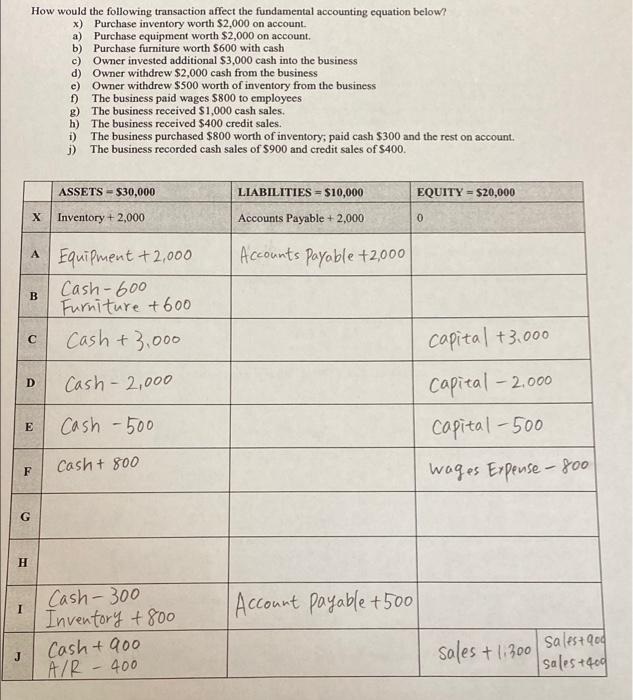 How would the following transaction affect the fundamental accounting equation below?
x) Purchase inventory worth $2,000 on account.
a) Purchase equipment worth $2,000 on account.
b) Purchase furniture worth $600 with cash
c) Owner invested additional $3,000 cash into the business
d) Owner withdrew $2,000 cash from the business
e) Owner withdrew $500 worth of inventory from the business
f) The business paid wages $800 to employees
g) The business received $1,000 cash sales.
h) The business received $400 credit sales.
i) The business purchased $800 worth of inventory; paid cash $300 and the rest on account.
j) The business recorded cash sales of $900 and credit sales of $400.
ASSETS = $30,000 LIABILITIES = $10,000 EQUITY = $20,000
X Inventory + 2,000 Accounts Payable + 2,000 0
A Equipment +2,000 Accounts Payable +2,000
B Cash - 600
Furniture +600
C Cash + 3,000 Capital +3,000
D Cash - 2,000 Capital - 2,000
E Cash - 500 Capital - 500
F Cash + 800 Wages Expense - 800
G
H
I Cash - 300 Account Payable +500
Inventory + 800
J Cash + 900 Sales + 1,300 Sales+900
A/R - 400 Sales+400